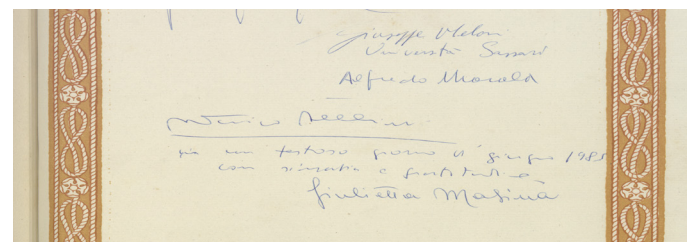 Giuseppe Meloni
Università Sassari
Alfredo
Federico Fellini
in un festoso giorno di giugno 1985
con simpatia e gratitudine
Giulietta Masina